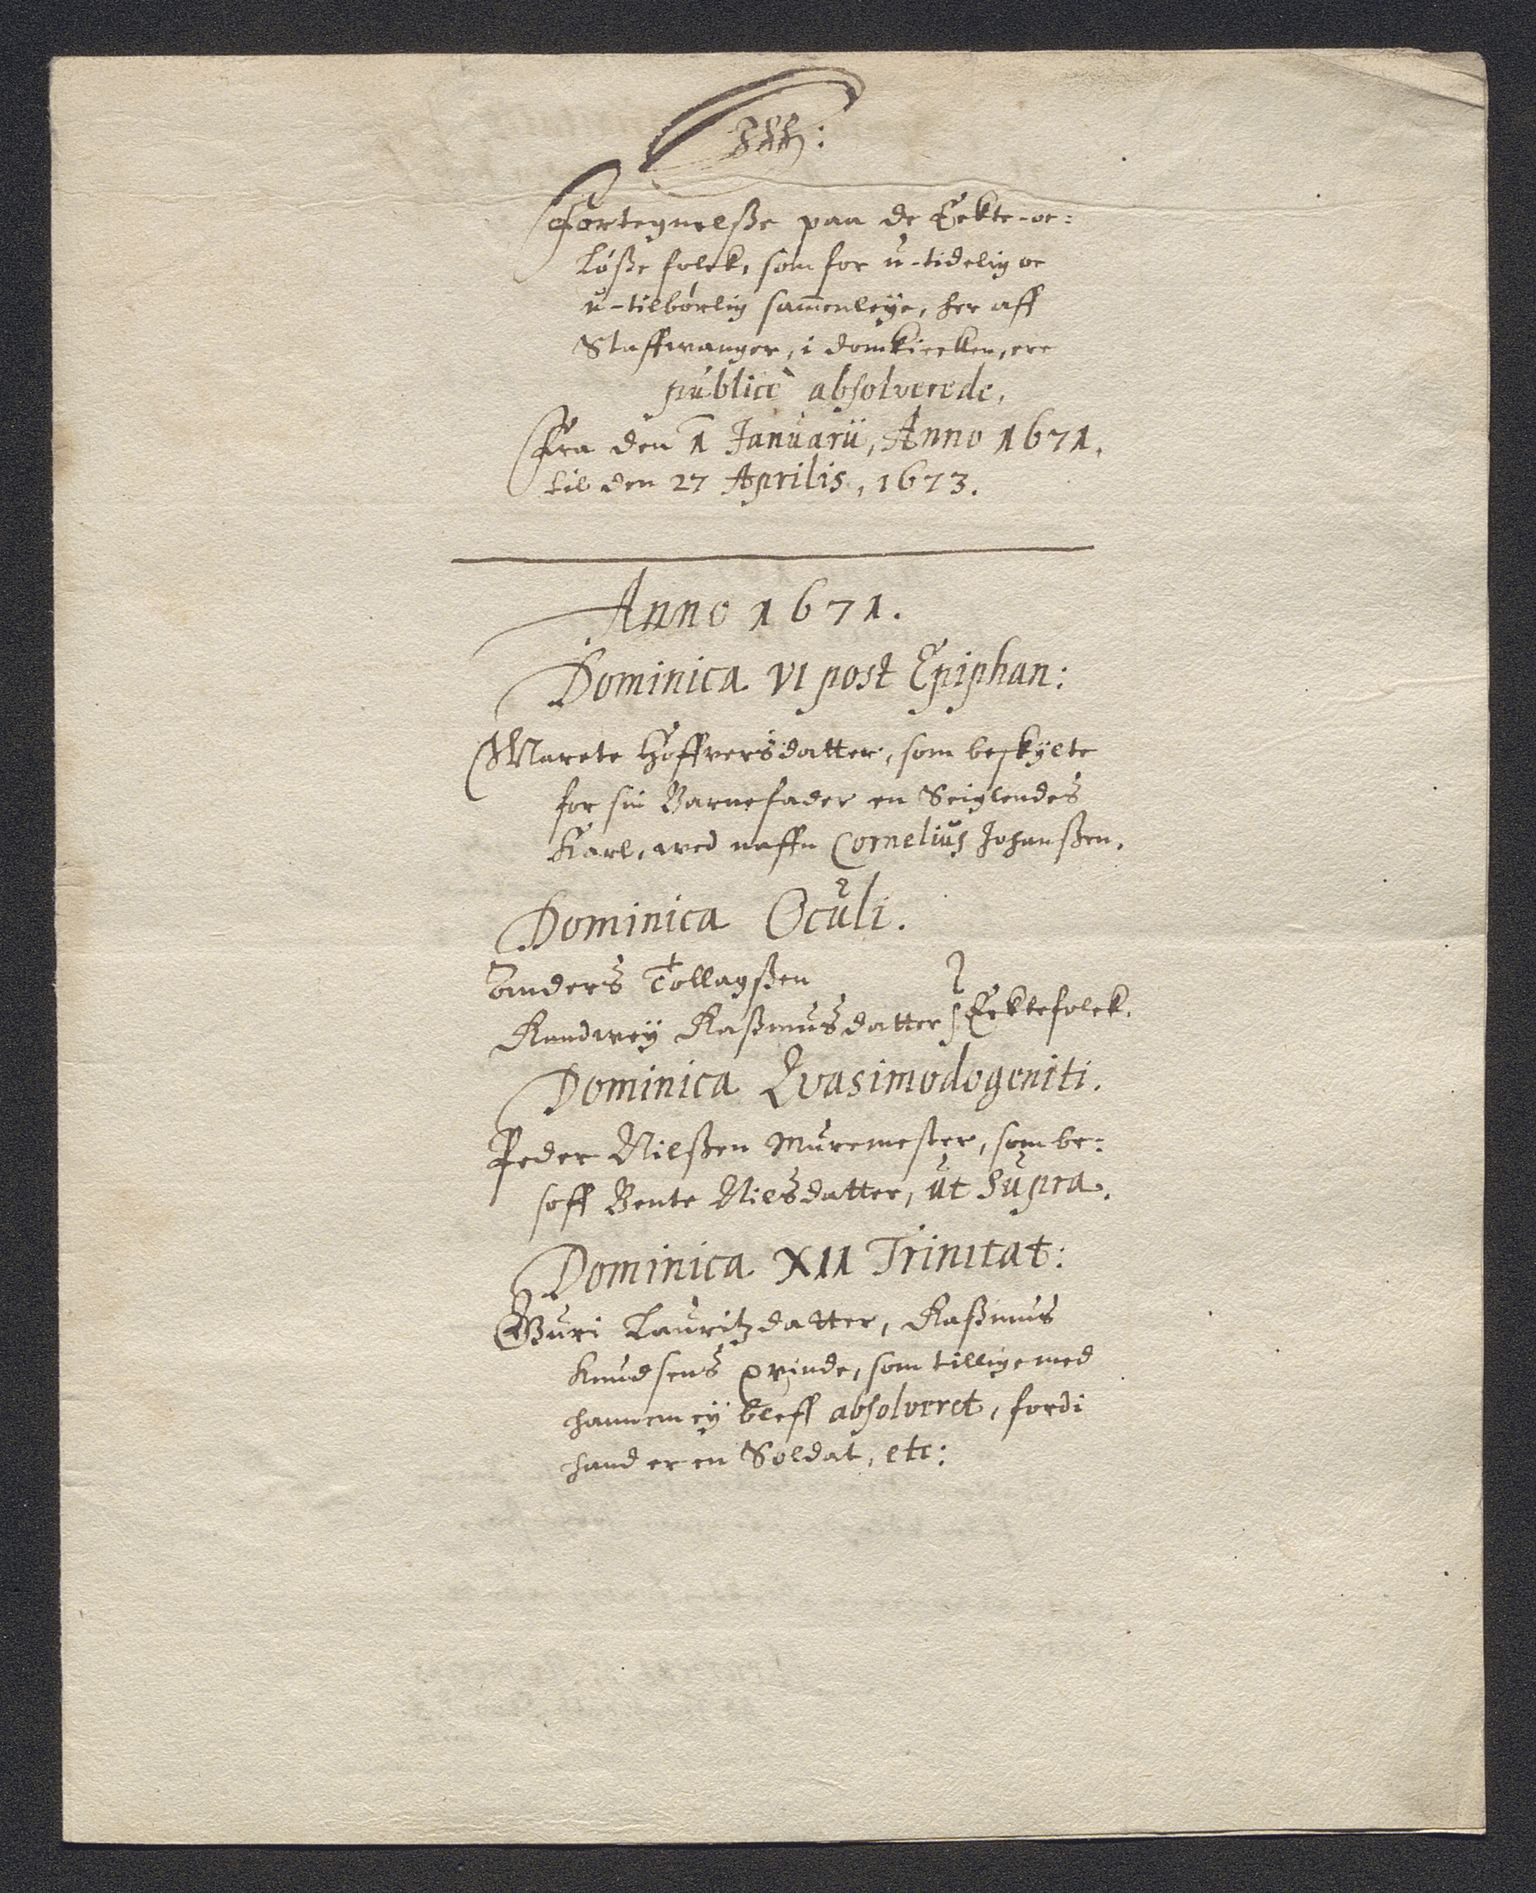 Fortegnelsse paa de Eckte- oc
Løsse folck, som for u-tidelig oc
u-tilbørlig sammenleye, her aff
Staffwanger, i domkircken, ere
publicè absolverede,
Fra den 1 Januarii, Anno 1671.
til den 27 Aprilis, 1673.
Anno 1671.
Dominica VI post Epiphan:
Marete Hoffversdatter, som beskylte
for sin Barnefader en Seiglendes
Karl, wed naffn Cornelius Johanssen.
Dominica Oculi.
Anders Tollagssen
Randwey Rassmusdatter } Ecktefolck.
Dominica Qvasimodogeniti.
Peder Nilssen Muremester, som be:
soff Bente Nielsdatter, ut supra.
Dominica XII Trinitat:
Guri Lauritzdatter, Rassmus
Knudsens qvinde, som tillige med
hannem ey bleff absolveret, fordi
hand er en Soldat, etc: